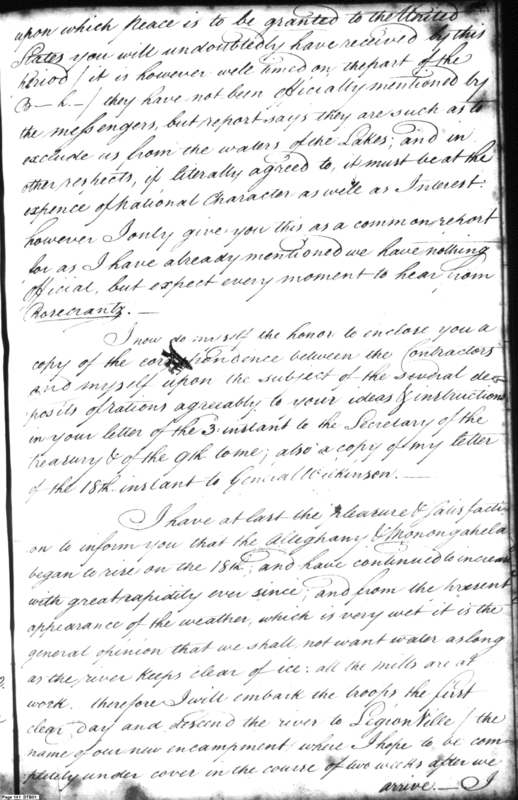 upon which Peace is to be granted to the United
States you will undoubtedly have received by this
period / it is however well timed on the part of the
B— h— / they have not been officially mentioned by
the messengers, but report says they are such as to
exclude us from the waters of the Lakes; and in
other respects, if literally agreed to, it must be at the
expence of National Character as well as Interest:
however I only give you this as a common report
for as I have already mentioned we have nothing
official, but expect every moment to hear from
Rosecrantz. —
I now do myself the honor to enclose you a
copy of the correspondence between the Contractors
and myself upon the subject of the several de-
posits of rations agreeably to your ideas & instructions
in your letter of the 3. instant to the Secretary of the
treasury & of the 9th to me; also a copy of my letter
of the 18th instant to General Wilkinson. —
I have at last the pleasure & satisfacti-
on to inform you that the Alleghany & Monongahela
began to rise on the 18th, and have continued to increase
with great rapidity ever since; and from the present
appearance of the weather, which is very wet it is the
general opinion that we shall not want water as long
as the river keeps clear of ice: all the mills are at
work. therefore I will embark the troops the first
clear day and descend the river to Legion Ville / the
name of our new encampment / where I hope to be com-
pletely under cover in the course of two weeks after we
arrive. — I
Page 191 DTB01